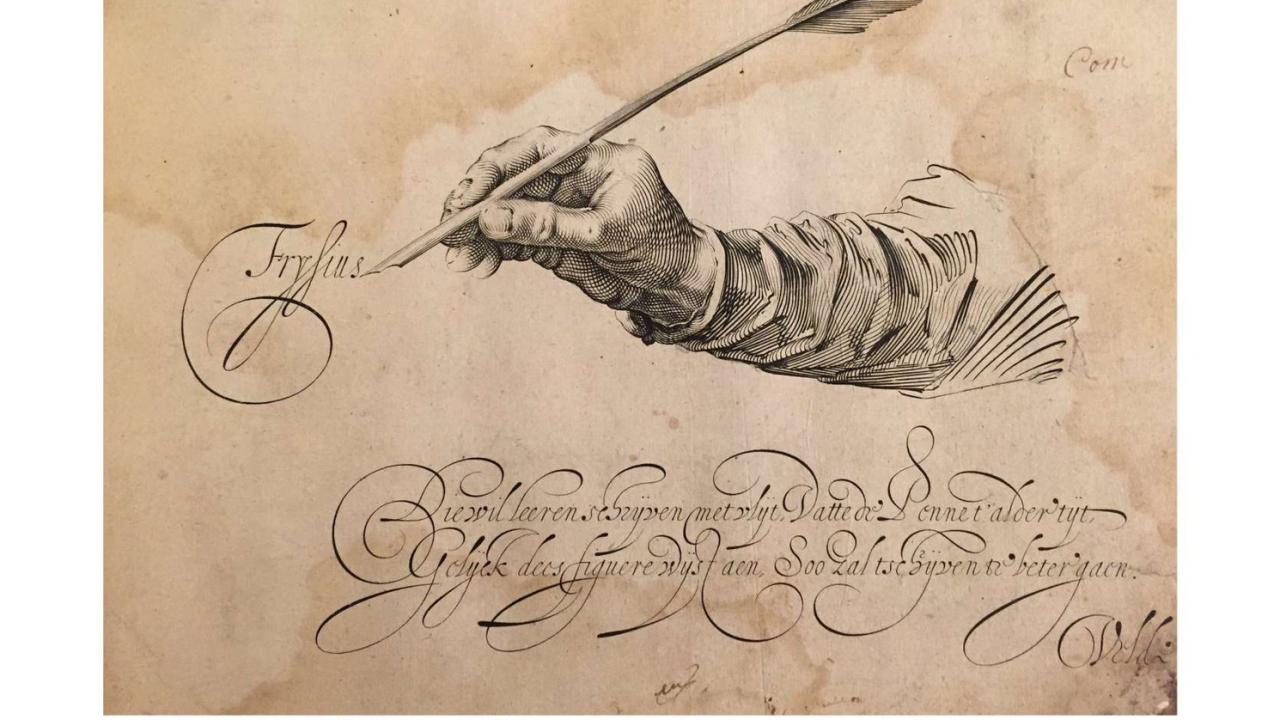 Com
Frysius
Die wil leeren schryven met vlyt, Vatte de Penne t'alder tyt,
Gelyck dees figuere wyst aen, Soo zal tschryven te beter gaen.